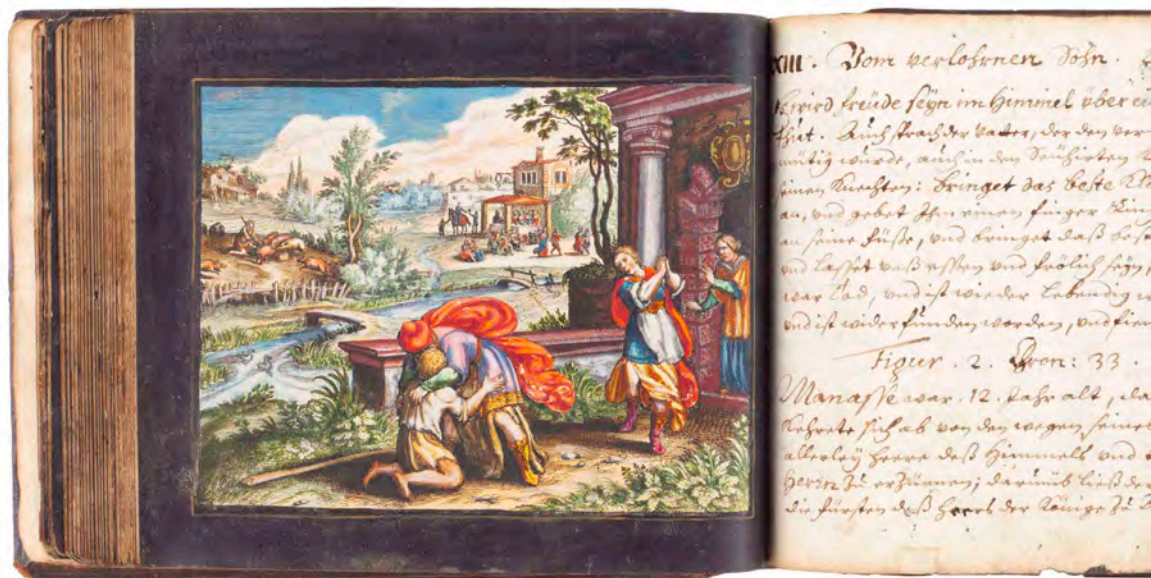 XIII. Vom verlohrnen Sohn.
wird freüde seyn im Himmel über
thut. Auch sprach der Vatter, der den
mütig wurde, auch in den
seinen Knechten: bringet das beste
an, vnd gebet Ihm einen finger
an seine füße, vnd bringet daß
vnd lasset vnß essen vnd frölich seyn,
war Tod, vnd ist wieder lebendig
vnd ist wider funden worden, vnd
figur. 2. Chron: 33.
Manasse war. 12. Jahr alt,
kehrete sich ab von den wegen seines
allerley Heere deß Himmels vnd
Herrn zu erzürnen; darumb ließ der
die fürsten deß Heers der Könige zu